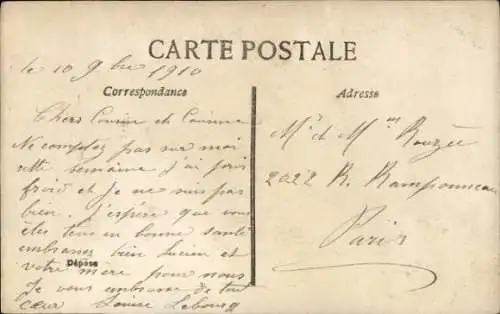 CARTE POSTALE
le 10 9bre 1910
Correspondance
Adresse
Chers Cousin et Cousine
Ne comptez pas sur moi
cette semaine j'ai pris
froid et Je ne suis pas
bien. J'espère que vous
êtes tous en bonne santé
embrassez bien Lucien et
votre mère pour nous
Déposé
Je vous embrasse de tout
cœur Louise Lebourg
Mr et Mme Rouzée
R. Ramponneau
Paris